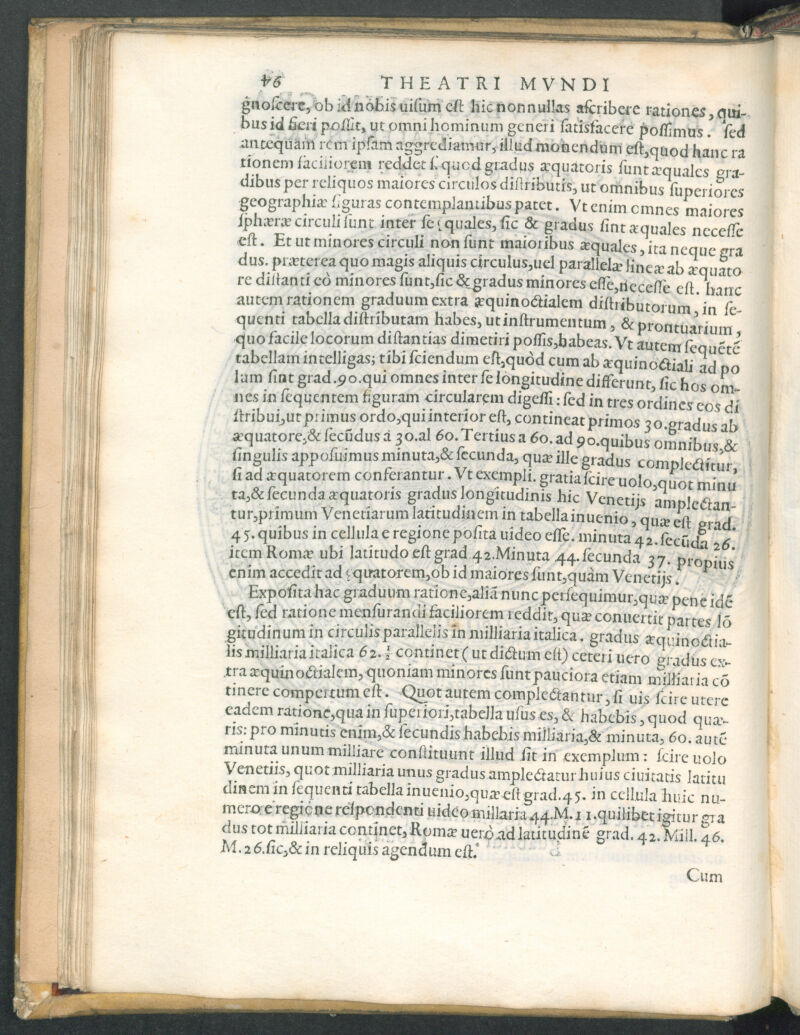 46 THEATRI MVNDI
gnoſcere, ob id nobis uiſum eſt hic nonnullas aſcribere rationes, qui-
bus id fieri poſſit, ut omni hominum generi ſatisfacere poſſimus. ſed
antequam rem ipſam aggrediamur, illud monendum eſt, quod hanc ra
tionem faciliorem reddet ſ. quod gradus æquatoris ſunt æquales gra-
dibus per reliquos maiores circulos diſtributis, ut omnibus ſuperiores
geographiæ figuras contemplantibus patet. Vt enim omnes maiores
ſphæræ circuli ſunt inter ſe ęquales, ſic & gradus ſint æquales neceſſe
eſt. Et ut minores circuli non ſunt maioribus æquales, ita neque gra
dus. præterea quo magis aliquis circulus, uel parallelæ lineæ ab æquato
re diſtanti eò minores ſunt, ſic & gradus minores eſſe, neceſſe eſt. hanc
autem rationem graduum extra æquinoctialem diſtributorum, in ſe-
quenti tabella diſtributam habes, ut inſtrumentum, & prontuarium,
quo facile locorum diſtantias dimetiri poſſis, habeas. Vt autem ſequētē
tabellam intelligas; tibi ſciendum eſt, quòd cum ab æquinoctiali ad po
lum ſint grad. 90. qui omnes inter ſe longitudine differunt, ſic hos om-
nes in ſequentem figuram circularem digeſſi: ſed in tres ordines eos di
ſtribui, ut primus ordo, qui interior eſt, contineat primos 30. gradus ab
æquatore, & ſecūdus à 30. al 60. Tertius a 60. ad 90. quibus omnibus, &
ſingulis appoſuimus minuta, & ſecunda, quæ ille gradus complectitur,
ſi ad æquatorem conferantur. Vt exempli. gratia ſcire uolo, quot minu
ta, & ſecunda æquatoris gradus longitudinis hic Venetijs amplectan-
tur, primum Venetiarum latitudinem in tabella inuenio, quæ eſt grad.
45. quibus in cellula e regione poſita uideo eſſe. minuta 42. ſecūda 26.
item Romæ ubi latitudo eſt grad 42. Minuta 44. ſecunda 37. propius
enim accedit ad ęquatorem, ob id maiores ſunt, quàm Venetijs.
Expoſita hac graduum ratione, aliā nunc perſequimur, quæ pene idē
eſt, ſed ratione menſurandi faciliorem reddit, quæ conuertit partes lō
gitudinum in circulis parallelis in milliaria italica. gradus æquinoctia-
lis milliaria italica 62. ½ continet (ut dictum eſt) ceteri uero gradus ex-
tra æquinoctialem, quoniam minores ſunt pauciora etiam milliaria cō
tinere compertum eſt. Quot autem complectantur, ſi uis ſcire utere
eadem ratione, qua in ſuperiori, tabella uſus es, & habebis, quod quæ-
ris: pro minutis enim, & ſecundis habebis milliaria, & minuta, 60. autē
minuta unum milliare conſtituunt illud ſit in exemplum: ſcire uolo
Venetiis, quot milliaria unus gradus amplectatur huius ciuitatis latitu
dinem in ſequenti tabella inuenio, quæ eſt grad. 45. in cellula huic nu-
mero e regione reſpondenti uideo millaria 44. M. 11. quilibet igitur gra
dus tot milliaria continet, Romæ uero ad latitudinē grad. 42. Mill. 46.
M. 26. ſic, & in reliquis agendum eſt.
Cum